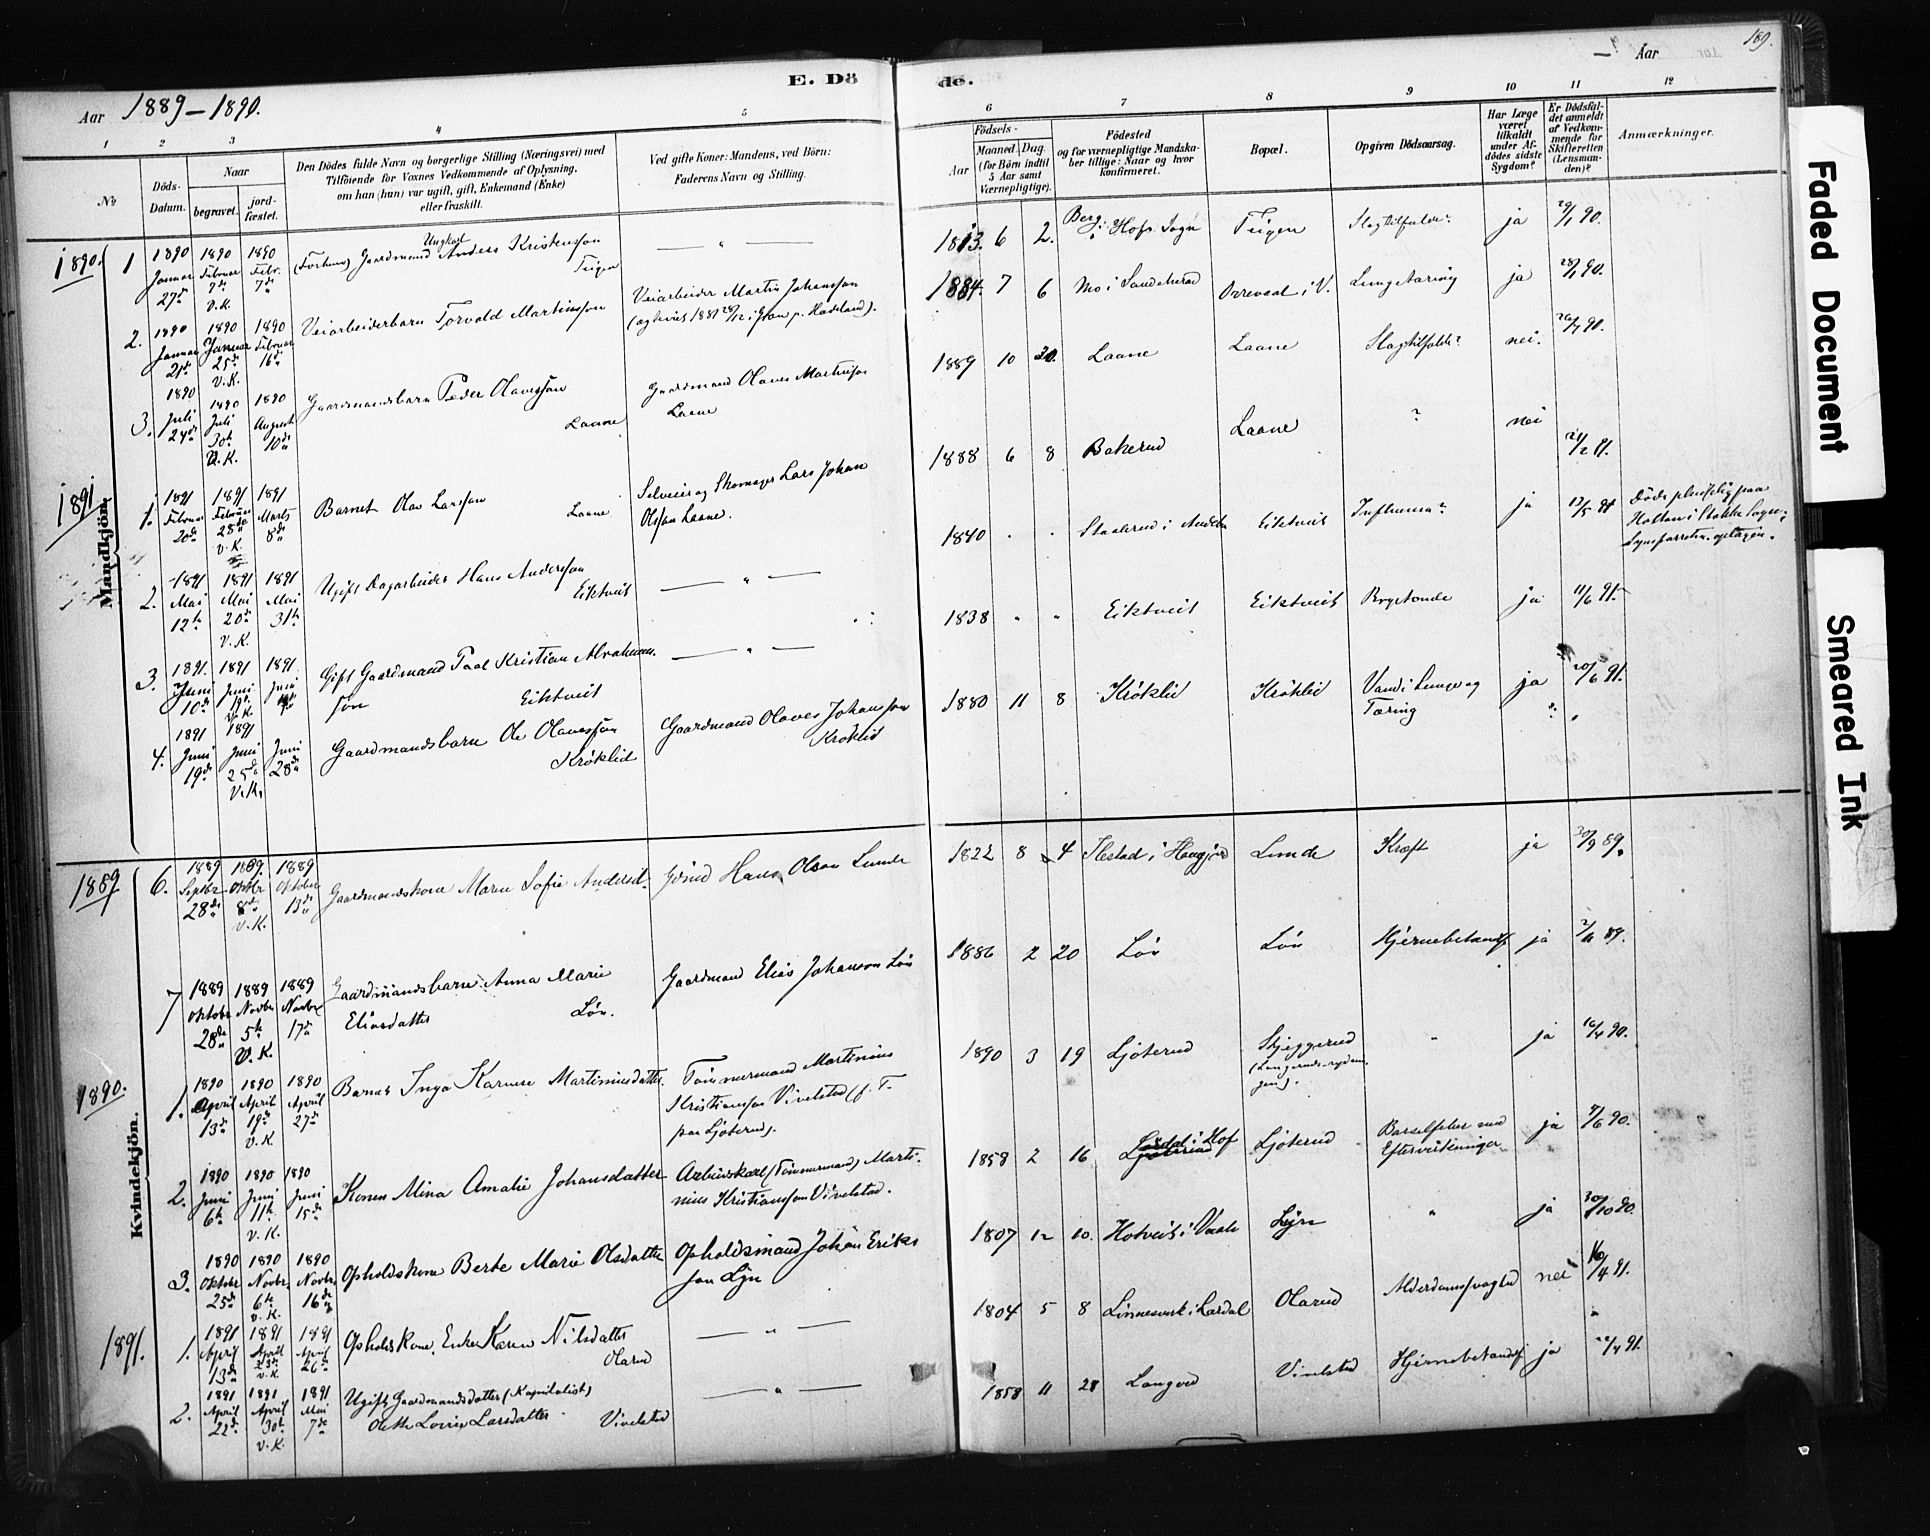 189.
Aar 1889–1890.
E. Dö de.
— Aar
1 2 3 4 5 6 7 8 9 10 11 12
№
Döds-
Datum.
Naar
begravet.
jord-
fæstet.
Den Dödes fulde Navn og borgerlige Stilling (Næringsvei) med
Tilföiende for Voxnes Vedkommende af Oplysning,
om han (hun) var ugift, gift, Enkemand (Enke)
eller fraskilt.
Ved gifte Koner: Mandens, ved Börn:
Faderens Navn og Stilling.
Födsels-
Aar
Maaned.
Dag.
(for Börn indtil
5 Aar samt
Værnepligtige).
Födested
og for værnepligtige Mandska-
ber tillige: Naar og hvor
konfirmeret.
Bopæl.
Opgiven Dödsaarsag.
Har Læge
været
tilkaldt
under Af-
dödes sidste
Sygdom?
Er Dödsfal-
det anmeldt
af Vedkom-
mende for
Skifteretten
(Lensman-
den)?
Anmærkninger.
Mandkjön.
1890.
1
1890 Januar 27de
1890 Februar 7de V.K.
1890 Febr. 7de
(Forhenv) Gaardmand Ungkarl Anders Kristensson
Teigen
— " —
1813. 6 2.
Berg i Hofs Sogn
Teigen
Slagtilfælde?
ja
29/1 90.
2.
1890 Januar 21de
1890 Januar 25de V.K.
1890 Februar 16de
Veiarbeiderbarn Torvald Martinsson
Veiarbeider Martin Johansson
1884. 7 6
Mo i Sandeherad
Orrevaal i V.
Lungetæring
ja
28/1 90.
3.
1890 Juli 24de
1890 Juli 30te V.K.
1890 August 10de
Gaardmandsbarn Peder Olavessøn
Laane
Gaardmand Olaves Martinson
Laane
1889 10 30.
Laane
Laane
Slagtilfælde?
nei.
26/7 90.
1891
1.
1891 Februar 20de
1891 Februar 28de V.K.
1891 Marts 8de
Barnet Olav Larssøn
Laane
Selveier og Skomager Lars Johan
Olsson Laane.
1888 6 8
Bakerud
Laane
?
nei
21/2 91.
2.
1891 Mai 12te
1891 Mai 20de V.K.
1891 Mai 31te
Ugift Dagarbeider Hans Anderssøn
Eiktveit
— " —
1840 " "
Eiktveit
Influensa?
ja
13/5 91
Døde pludselig paa
Holtan i Stokke Sogn;
3.
1891. Juni 10de
1891 Juni 19de V.K.
1891. Juni
Gift Gaardmand Paal Kristian Abrahams-
søn
Eiktveit
— " —
1838 " "
Eiktveit
Eiktveit
Brystonde
ja
11/6 91.
4.
1891 Juni 19de
1891 Juni 25de V.K.
Juni 28de
Gaardmandsbarn Ole Olavessøn
Krøklid
Gaardmand Olaves Johansson
Krøklid
1880 11 8
Krøklid
Krøklid
Vand i Lunge og
Tæring
ja
20/6 91.
Kvindekjön.
1889
6.
1889 Septbr 28de
1889. Oktbr 8de V.K.
1889 Oktober 13de
Gaardmandskone Maren Sofie Andersd.
Gbrd Hans Olsson Lunde
1822 8 4
Lunde
Kræft
ja
30/9 89.
7
1889 Oktobr 28de
1889 Novbr 5te V.K.
1889 Novbr 17de
Gaardmandsbarn Anna Marie
Eliasdatter
Løv.
Gaardmand Elias Johanson Løv
1886 2 20
Løv
Løv
Hjernebetændf
ja
2/11 89.
1890.
1.
1890 April 13de
1890 April 19de V.K.
1890 April 27de
Barnet Inga Karine Martiniusdatter.
Tømmermand Martinius
Kristiansson Vivelstad (f. T.
paa Ljøterud).
1890 3 19
Ljøterud
Skjeggerud
"
ja
16/4 90.
2.
1890 Juni 6te
1890 Juni 11te V.K.
1890 Juni 15de
Konen Mina Amalie Johansdatter
Arbeidskarl (Tømmermand) Marti-
nius Kristiansson Vivelstad.
1859 2 16
Lørdal i Hof
Ljøterud
Barselfeber med
Eftervirkninger
ja
9/6 90.
3.
1890 Oktobr 25de
1890 Novbr. 6te V.K.
1890 Novbr 16de
Opholdskone Berte Marie Olsdatter
Opholdsmand Johan Eriks
søn Lijn
1807 12 10.
Hotveit i Vaale
Lijn
"
ja
30/10 90.
1891.
1.
1891 April 13de
1891 April 23de V.K
1891 April 26de
Opholdskone, Enke Karen Nilsdatter
Olarud
— " —
1804 5 8
Linnesvesk i Lardal
Olarud
Alderdomssvaghed
nei
16/4 91.
2.
1891 April 22de
1891 April 30te V.K.
1891 Mai 7de
Ugift Gaardmandsdatter (Kapitalist)
Olette Lovise Larsdatter
Vivelstad
— " —
1858 11 28
Langvd
Vivelstad
Hjernebetændf
ja
22/4 91.
Faded Document
Smeared Ink